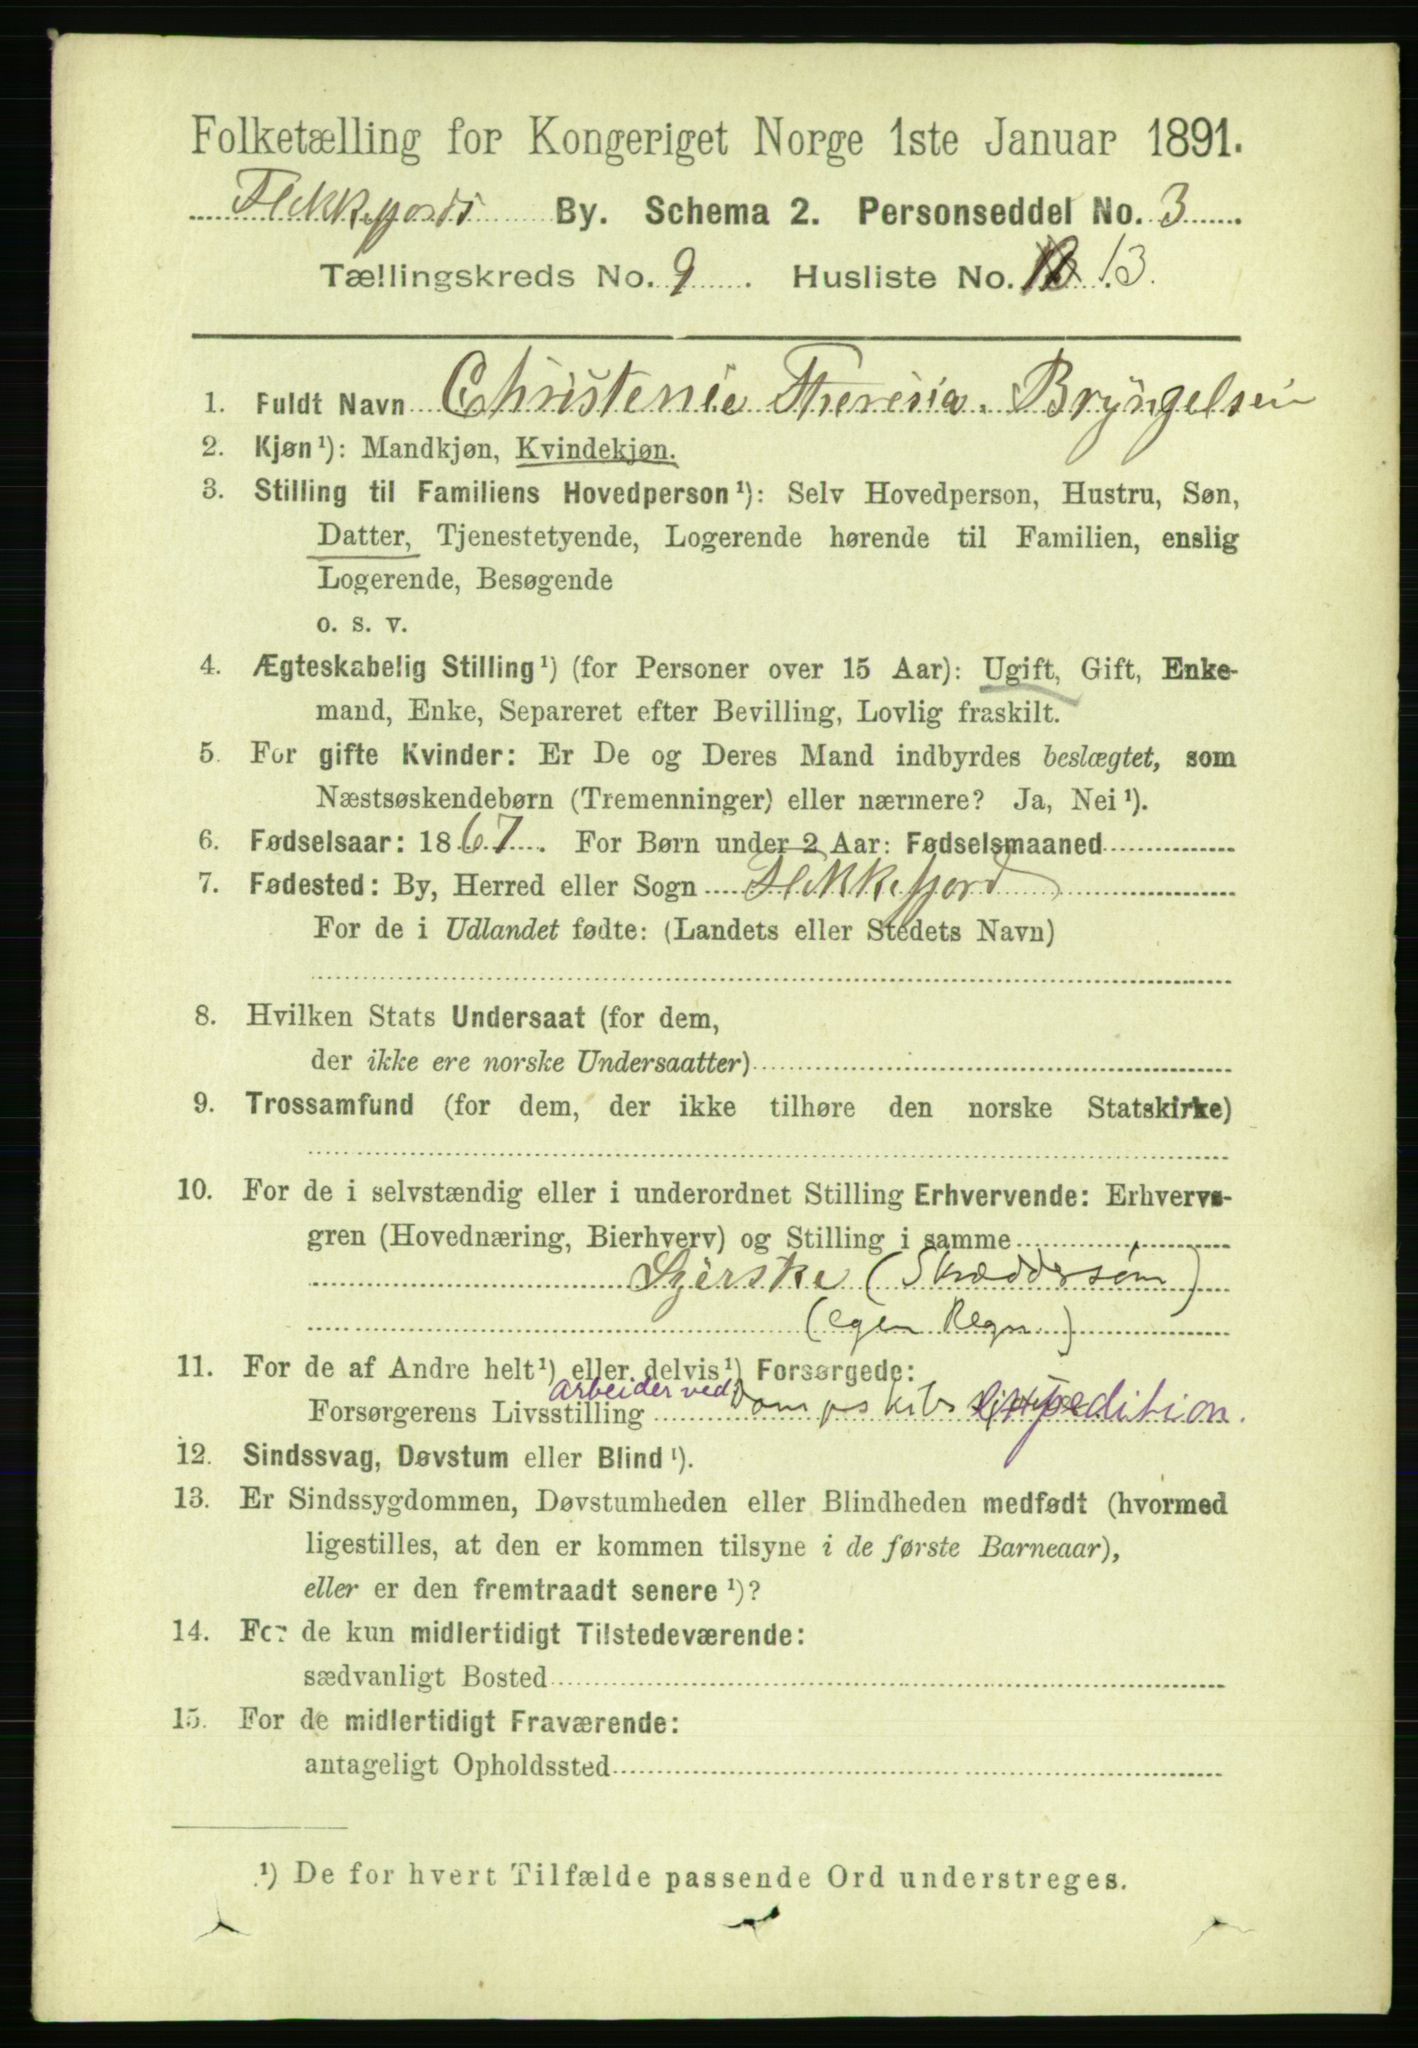 Folketælling for Kongeriget Norge 1ste Januar 1891.
Flekkefjords By. Schema 2. Personseddel No. 3
Tællingskreds No. 9. Husliste No. 13.
1. Fuldt Navn Christenie Theresia. Bryngelsen
2. Kjøn¹): Mandkjøn, Kvindekjøn.
3. Stilling til Familiens Hovedperson¹): Selv Hovedperson, Hustru, Søn,
Datter, Tjenestetyende, Logerende hørende til Familien, enslig
Logerende, Besøgende
o. s. v.
4. Ægteskabelig Stilling¹) (for Personer over 15 Aar): Ugift, Gift, Enke-
mand, Enke, Separeret efter Bevilling, Lovlig fraskilt.
5. For gifte Kvinder: Er De og Deres Mand indbyrdes beslægtet, som
Næstsøskendebørn (Tremenninger) eller nærmere? Ja, Nei¹).
6. Fødselsaar: 1867. For Børn under 2 Aar: Fødselsmaaned
7. Fødested: By, Herred eller Sogn Flekkefjord
For de i Udlandet fødte: (Landets eller Stedets Navn)
8. Hvilken Stats Undersaat (for dem,
der ikke ere norske Undersaatter)
9. Trossamfund (for dem, der ikke tilhøre den norske Statskirke)
10. For de i selvstændig eller i underordnet Stilling Erhvervende: Erhvervs-
gren (Hovednæring, Bierhverv) og Stilling i samme
Syerske (Skræddersøm)
(egen Regn.)
11. For de af Andre helt¹) eller delvis¹) Forsørgede:
Forsørgerens Livsstilling arbeider ved Dampskibs expedition.
12. Sindssvag, Døvstum eller Blind¹).
13. Er Sindssygdommen, Døvstumheden eller Blindheden medfødt (hvormed
ligestilles, at den er kommen tilsyne i de første Barneaar),
eller er den fremtraadt senere¹)?
14. For de kun midlertidigt Tilstedeværende:
sædvanligt Bosted
15. For de midlertidigt Fraværende:
antageligt Opholdssted
¹) De for hvert Tilfælde passende Ord understreges.